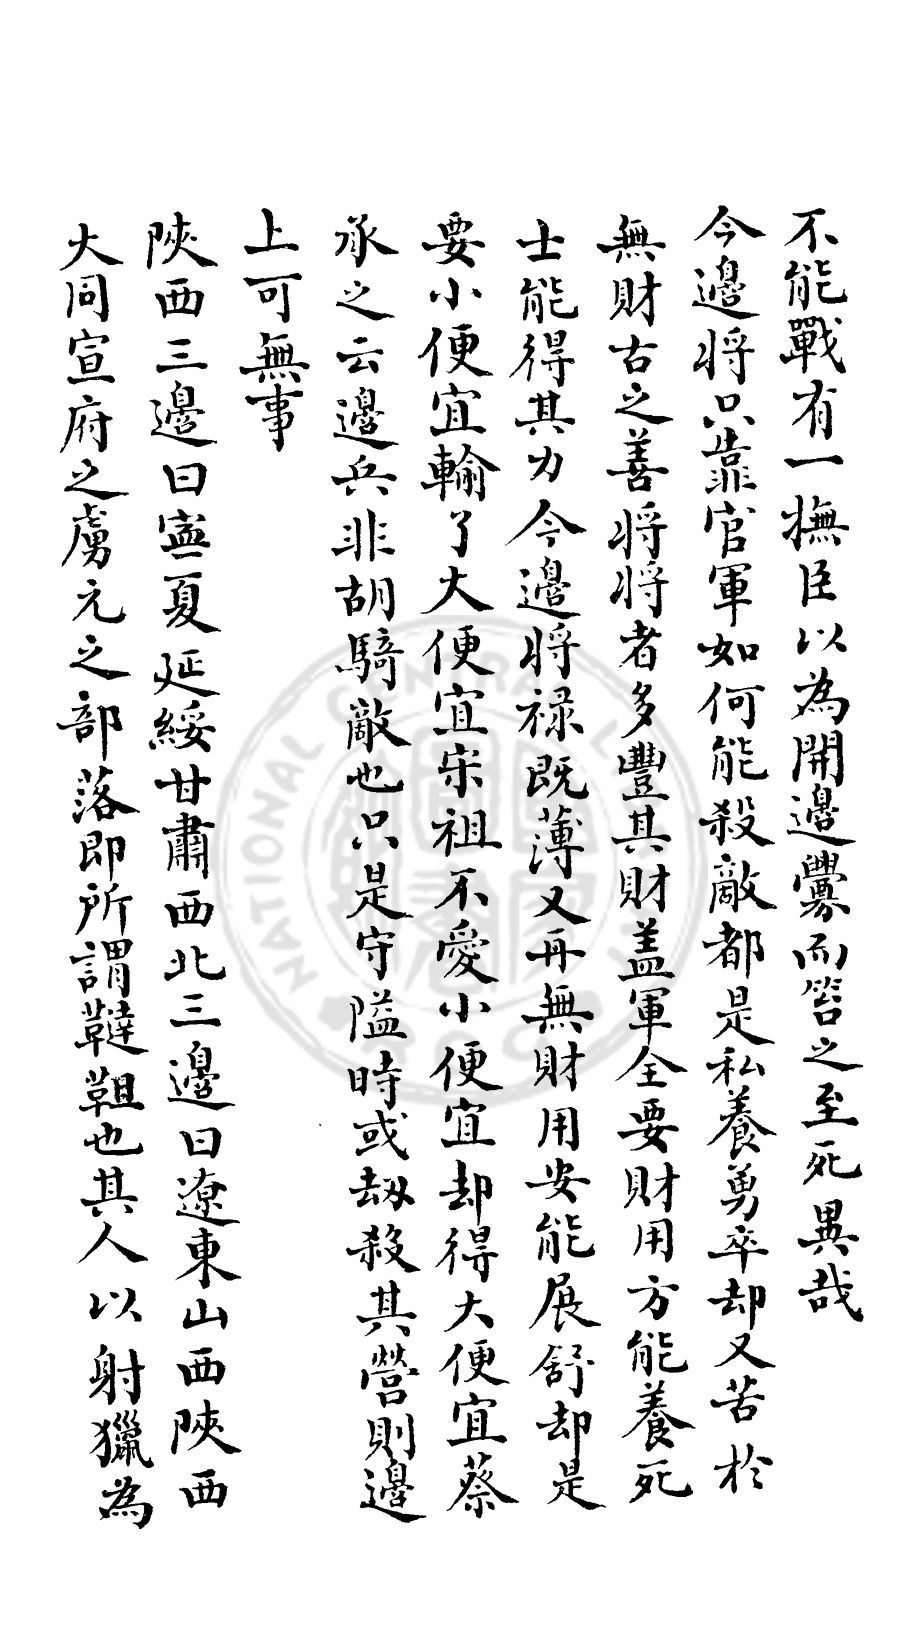 不能戰有一撫臣以為開邊釁而笞之至死異哉
今邊將只靠官軍如何能殺敵都是私養勇卒却又苦於
無財古之善將將者多豐其財盖軍全要財用方能養死
士能得其力今邊將祿既薄又再無財用安能展舒却是
要小便宜輸了大便宜宋祖不愛小便宜却得大便宜蔡
承之云邊兵非胡騎敵也只是守隘時或刼殺其營則邊
上可無事
陝西三邊曰寧夏延綏甘肅西北三邊曰遼東山西陝西
大同宣府之虜元之部落即所謂韃靼也其人以射獵為
NATIONAL CENTRAL LIBRARY